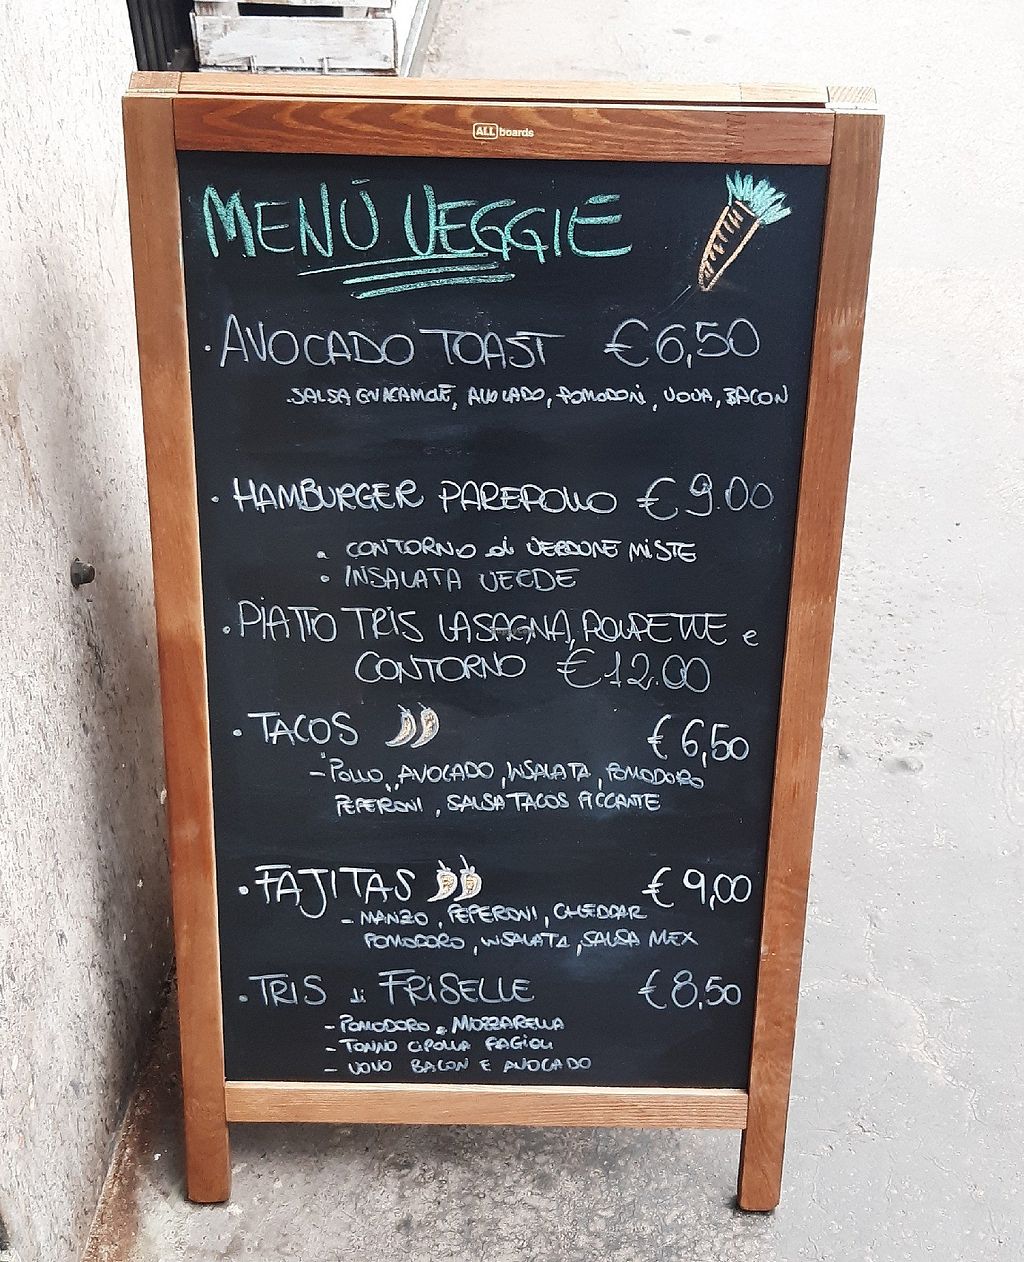 ALL boards
MENÙ VEGGIE
• AVOCADO TOAST €6,50
SALSA GUACAMOLE, AVOCADO, POMODORI, UOVA, BACON
• HAMBURGER PAREPOLLO €9.00
• CONTORNO di VERDURE MISTE
• INSALATA VERDE
• PIATTO TRIS LASAGNA, POLPETTE e
CONTORNO €12.00
• TACOS €6,50
- POLLO, AVOCADO, INSALATA, POMODORO
PEPERONI, SALSA TACOS PICCANTE
• FAJITAS €9,00
- MANZO, PEPERONI, CHEDDAR
POMODORO, INSALATA, SALSA MEX
• TRIS di FRISELLE €8,50
- POMODORO e MOZZARELLA
- TONNO CIPOLLA FAGIOLI
- UOVO BACON E AVOCADO